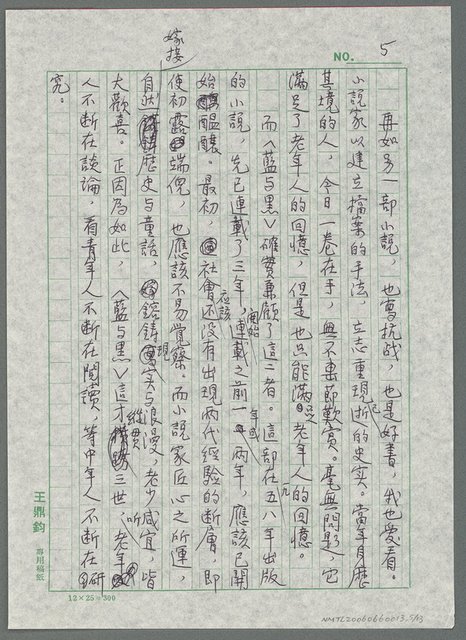 5
NO.
再如另一部小說，也寫抗战，也是好書，我也爱看。
小說家以建立檔案的手法，立志重現已逝的史实。當年身歷
其境的人，今日一卷在手，無不击節歎賞。毫無問題，它
滿足了老年人的回憶，但是也只能滿足老年人的回憶。
而〈藍与黑〉確實兼顧了這三者。這部在一九五八年出版
的小說，先已連載了三年，開始連載之前一年或两年，應該已開
始醖釀。最初，社會應該还沒有出現两代經驗的断層，即
使初露端倪，也應該不易覺察。而小說家匠心之所運，
自能嫁接歷史与童話，鎔鑄現实与浪漫，老少咸宜，皆
大歡喜。正因为如此，〈藍与黑〉這才縱貫三世，所老年
人不断在談論，看青年人不断在閱讀，等中年人不断在研
究。
王鼎鈞 專用稿紙
12×25=300
NMTL20060660013.5/13